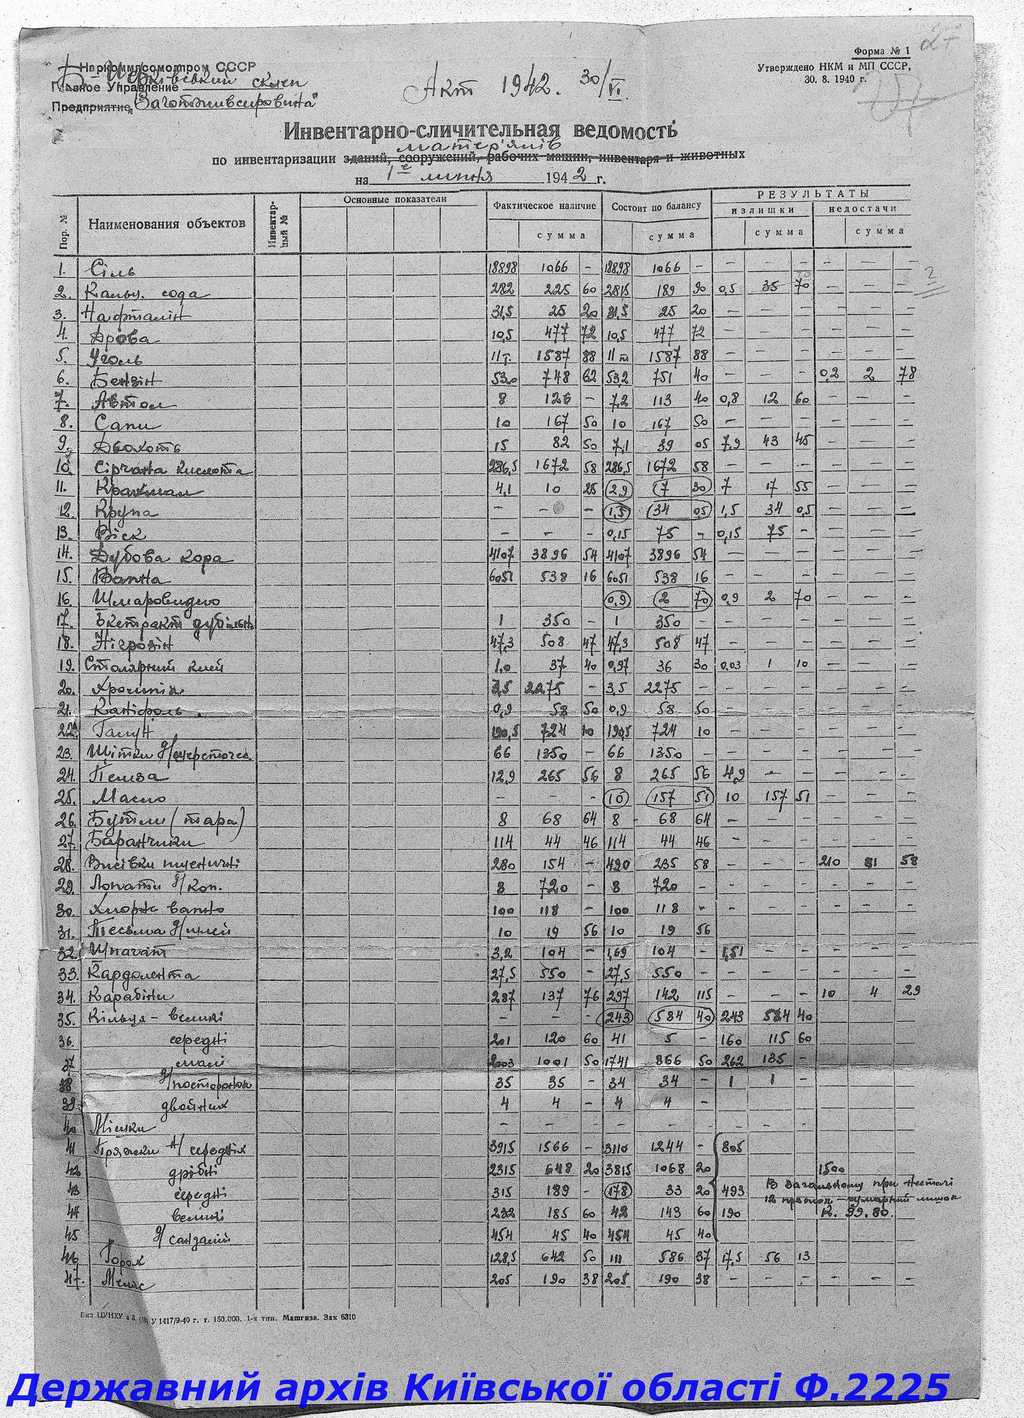 Форма № 1
27
Наркоммясомолпром СССР
Утверждено НКМ и МП СССР,
30. 8. 1940 г.
Главное Управление
склеп
Предприятие
Акт 1942. 30/VI.
Инвентарно-сличительная ведомость
матерялів
по инвентаризации зданий, сооружений, рабочих машин, инвентаря и животных
на 1е липня 1942 г.
Пор. № Наименования объектов Инвентарный № Основные показатели Фактическое наличие Состоит по балансу РЕЗУЛЬТАТЫ
излишки недостачи
сумма сумма сумма сумма
1. Сіль 18898 1066 – 18898 1066 – – – – – – –
2. Кальц. сода 282 225 60 281,5 189 90 0,5 35 70 – – –
3. Нафталін 31,5 25 20 31,5 25 20 – – – – – –
4. Дрова 10,5 477 72 10,5 477 72 – – – – – –
5. Уголь 11т. 1587 88 11т 1587 88 – – – – – –
6. Бензін 53,0 748 62 53,2 751 40 – – – 0,2 2 78
7. Автол 8 126 – 7,2 113 40 0,8 12 60 – – –
8. Сапи 10 167 50 10 167 50 – – – – – –
9. Дьохоть 15 82 50 7,1 39 05 7,9 43 45 – – –
10. Сірчана кислота 286,5 1672 58 286,5 1672 58 – – – – – –
11. Крахмал 4,1 10 25 2,9 7 30 7 17 55 – – –
12. Крупа – – – 1,5 34 05 1,5 34 0,5 – – –
13. Віск – – – 0,15 75 – 0,15 75 – – – –
14. Дубова кора 4107 3896 54 4107 3896 54 – – – – – –
15. Вапна 6051 538 16 6051 538 16 – – – – – –
16. Шмаровидло 0,9 2 70 0,9 2 70 – – –
17. Екстракт дубільн 1 350 – 1 350 – – – – – – –
18. Нігрозін 47,3 508 47 47,3 508 47 – – – – – –
19. Столярний клей 1,0 37 40 0,97 36 30 0,03 1 10 – – –
20. Хромпік 3,5 2275 – 3,5 2275 – – – – – – –
21. Каніфоль 0,9 58 50 0,9 58 50 – – – – – –
22. Галун 190,5 724 10 190,5 724 10 – – – – – –
23. Щітки д/ 66 1350 – 66 1350 – – – – – – –
24. Пемза 12,9 265 56 8 265 56 4,9 – – – – –
25. Масло – – – 10 157 51 10 157 51 – – –
26. Бутлі (тара) 8 68 64 8 68 64 – – – – – –
27. Баранчики 114 44 46 114 44 46 – – – – – –
28. Висівки пшеничні 280 154 – 490 235 58 – – – 210 81 58
29. Лопати д/коп. 8 720 – 8 720 – – – – – – –
30. Хлорн вапно 100 118 – 100 118 – – – – – – –
31. Тесьма д/ 10 19 56 10 19 56 – – – – – –
32. Шпагат 3,2 104 – 1,69 104 – 1,51 – – – – –
33. Кардолента 27,5 550 – 27,5 550 – – – – – – –
34. Карабіни 287 137 76 297 142 115 – – – 10 4 29
35. Кільця – великі – – – 243 584 40 243 584 40 – – –
36. середні 201 120 60 41 5 – 160 115 60 – – –
37 малі 2003 1001 50 1741 866 50 262 135 – – – –
38 д/посторонок 35 35 – 34 34 – 1 1 – – – –
39. двойних 4 4 – 4 4 – – – – – – –
40 Мішки – – – – – – – – – – – –
41 Пряжки д/середніх 3915 1566 – 3110 1244 – 805
42 дрібні 2315 648 20 3815 1068 20 1500
43 середні 315 189 – 178 33 20 493 В загальному при нестачі
44 великі 232 185 60 42 143 60 190 К. 99.80.
45 д/сандалій 454 45 40 454 45 40
46 Горох 128,5 642 50 111 586 37 17,5 56 13 – – –
47. Меляс 205 190 38 205 190 38 – – – – – –
У 1417/9-40 г. т. 150.000. 1-я тип. Машгиза. Зак 6310
Державний архів Київської області Ф.2225